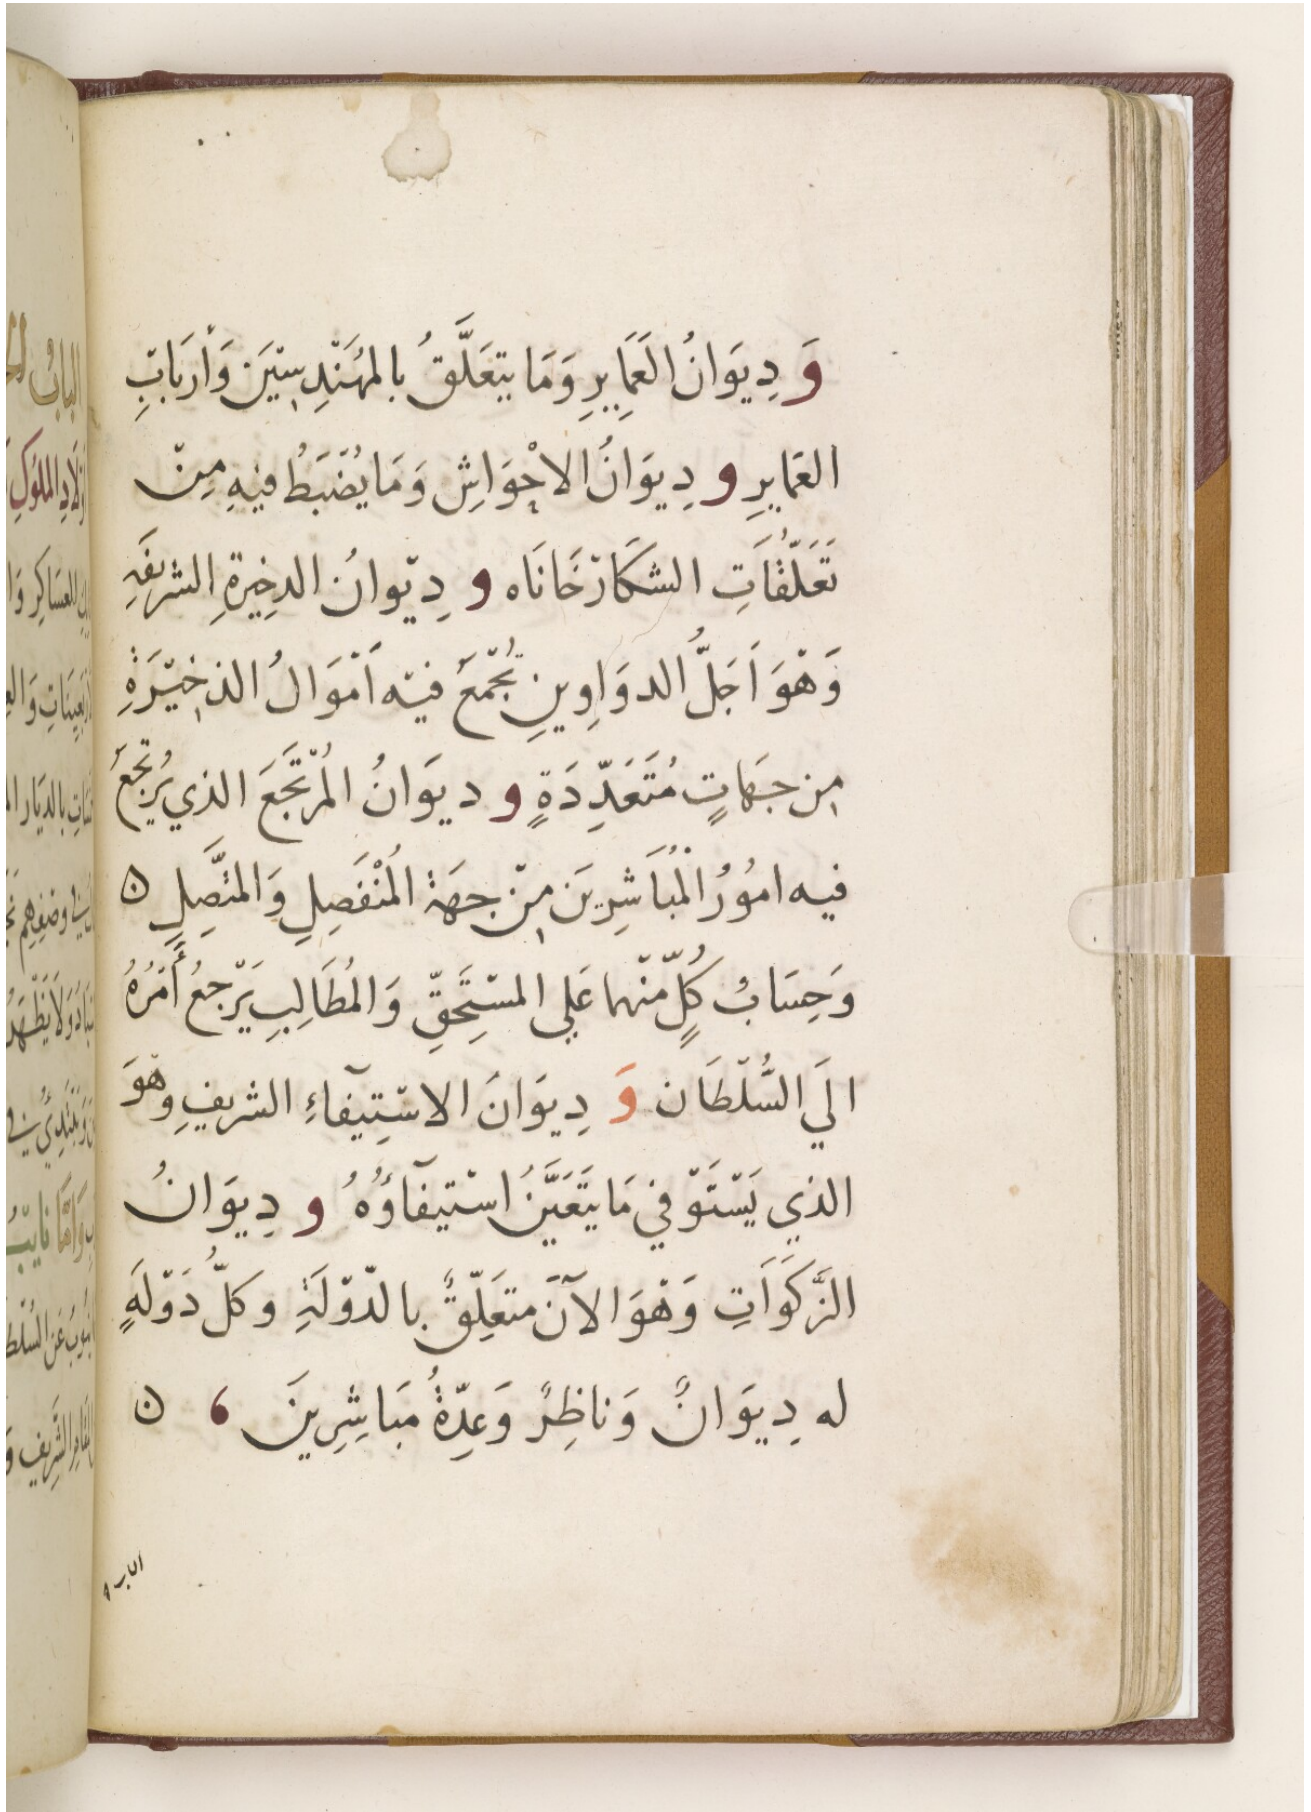 وَ دِيوَانُ العَمَايِرِ وَمَا يتعَلَّقُ بالمهَنْدِسيْنَ وَأرْبَابِ
العمايرِ و دِيوَانُ الاحْوَاشِ وَمَا يُضْبَطُ فيهِ مِنْ
تَعَلّقَاتِ الشكَارْخَانَاه و دِيْوانُ الدخِيرةِ الشريفَةِ
وَهْوَ اَجَلُّ الدوَاوِينِ تُجْمَعُ فيْه اَمْوَالُ الذخِيْرَةِ
من جهَاتٍ مُتَعَدِّدَةٍ و ديوَانُ المُرْتَجَعَ الذي يُرتجَعُ
فيه امُورُ المُبَاَشِرِيَن مِنْ جهَة المُنْفَصِلِ وَالمتَّصِلِ ن
وَحِسَابُ كُلٍّ منْهما عَلي المسْتَحِقِّ وَالمُطَالِبِ يَرْجعُ أَمْرُهُ
الَي السُّلْطَان وَ دِيوَانَ الاسْتِيفآءِ الشريفِ وهْوَ
الذي يَسْتَوْفي مَا يَتَعَيَّنُ اسْتيفآؤُهُ و دِيوَانُ
الزَّكَوَاَتِ وَهْوَ الآنَ متعَلِّقٌ بالدّوْلَةِ وكلُّ دَوْلَةٍ
له دِيوَانٌ وَناظِرٌ وَعِدّةُ مبَاشِرِينَ ، ن